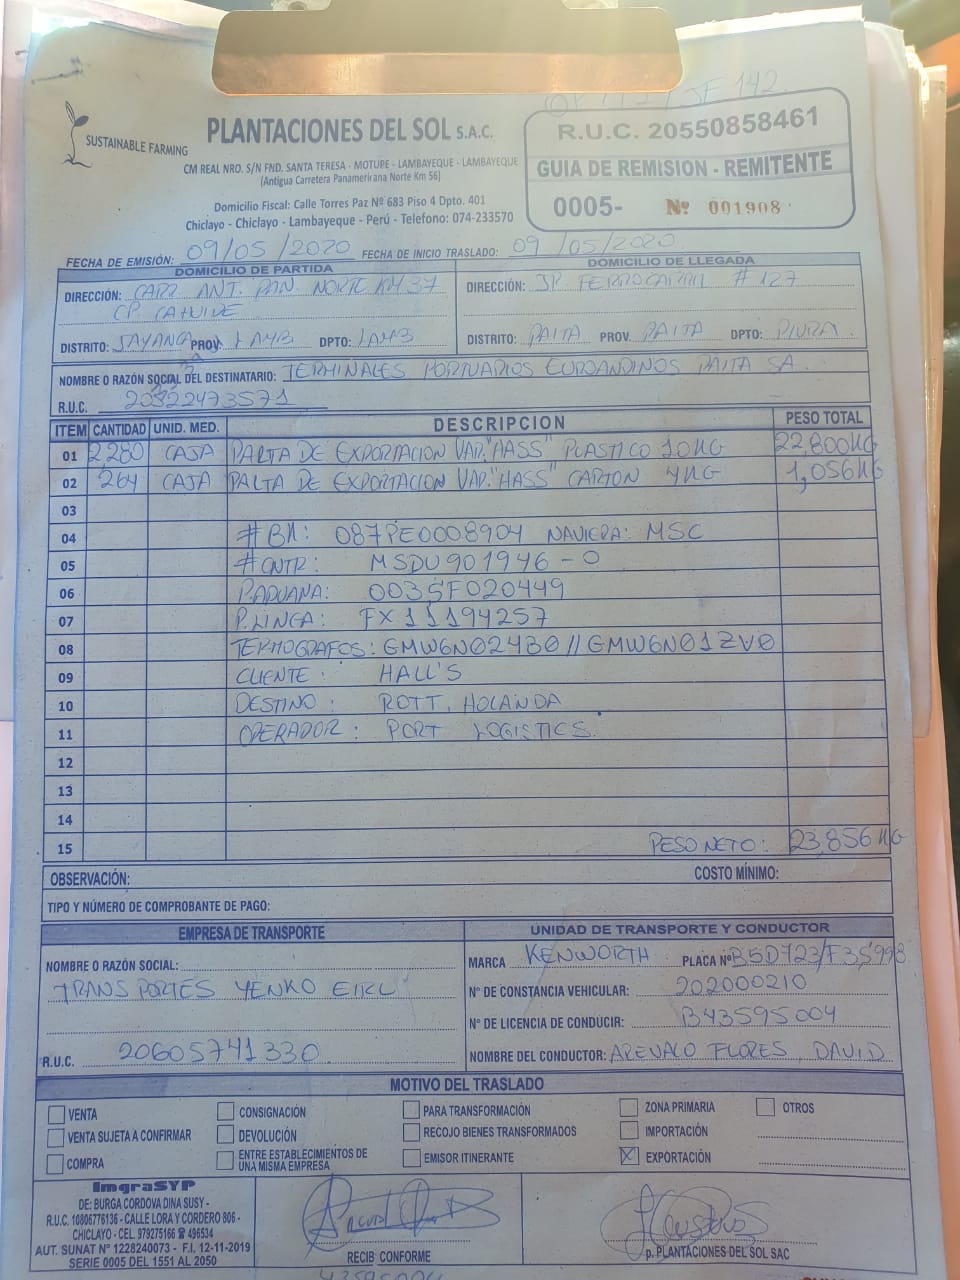 SUSTAINABLE FARMING
PLANTACIONES DEL SOL S.A.C.
CM REAL NRO. S/N FND. SANTA TERESA - MOTUPE - LAMBAYEQUE - LAMBAYEQUE
(Antigua Carretera Panamericana Norte Km 56)
Domicilio Fiscal: Calle Torres Paz Nº 683 Piso 4 Dpto. 401
Chiclayo - Chiclayo - Lambayeque - Perú - Telefono: 074-233570
142
R.U.C. 20550858461
GUIA DE REMISION - REMITENTE
0005- Nº 001908
FECHA DE EMISIÓN: 09/05/2020 FECHA DE INICIO TRASLADO: 09/05/2020
DOMICILIO DE PARTIDA
DIRECCIÓN: CARR. ANT. PAN. NORTE KM 37
CP CAHUIDE
DISTRITO: JAYANCA PROV. LAMB DPTO: LAMB
DOMICILIO DE LLEGADA
DIRECCIÓN: JR FERROCARRIL # 127
DISTRITO: PAITA PROV. PAITA DPTO: PIURA
NOMBRE O RAZÓN SOCIAL DEL DESTINATARIO: TERMINALES PORTUARIOS EUROANDINOS PAITA SA
R.U.C. 20522473571
ITEM CANTIDAD UNID. MED. DESCRIPCION PESO TOTAL
01 2,280 CAJA PALTA DE EXPORTACION VAR. "HASS" PLASTICO 10KG 22,800KG
02 264 CAJA PALTA DE EXPORTACION VAR. "HASS" CARTON 4KG 1,056KG
03
04 #BK: 087PE0008904 NAVIERA: MSC
05 #CNTR: MSDU901946-0
06 P.ADUANA: 0035F020449
07 P.LINEA: FX11194257
08 TERMOGRAFOS: GMW6N02430//GMW6N01ZV0
09 CLIENTE: HALL'S
10 DESTINO: ROTT, HOLANDA
11 OPERADOR: PORT LOGISTICS.
12
13
14
15 PESO NETO: 23,856KG
OBSERVACIÓN: COSTO MÍNIMO:
TIPO Y NÚMERO DE COMPROBANTE DE PAGO:
EMPRESA DE TRANSPORTE
NOMBRE O RAZÓN SOCIAL:
TRANSPORTES YENKO EIRL
R.U.C. 20605741330
UNIDAD DE TRANSPORTE Y CONDUCTOR
MARCA KENWORTH PLACA Nº B5D723/F3S998
Nº DE CONSTANCIA VEHICULAR: 202000210
Nº DE LICENCIA DE CONDUCIR: B43595004
NOMBRE DEL CONDUCTOR: AREVALO FLORES, DAVID
MOTIVO DEL TRASLADO
VENTA CONSIGNACIÓN PARA TRANSFORMACIÓN ZONA PRIMARIA OTROS
VENTA SUJETA A CONFIRMAR DEVOLUCIÓN RECOJO BIENES TRANSFORMADOS IMPORTACIÓN
COMPRA ENTRE ESTABLECIMIENTOS DE UNA MISMA EMPRESA EMISOR ITINERANTE X EXPORTACIÓN
ImgraSYP
DE: BURGA CORDOVA DINA SUSY -
R.U.C. 10806776136 - CALLE LORA Y CORDERO 806 -
CHICLAYO - CEL. 979275166 ☎ 496534
AUT. SUNAT Nº 1228240073 - F.I. 12-11-2019
SERIE 0005 DEL 1551 AL 2050
RECIBI CONFORME
43595004
p. PLANTACIONES DEL SOL SAC